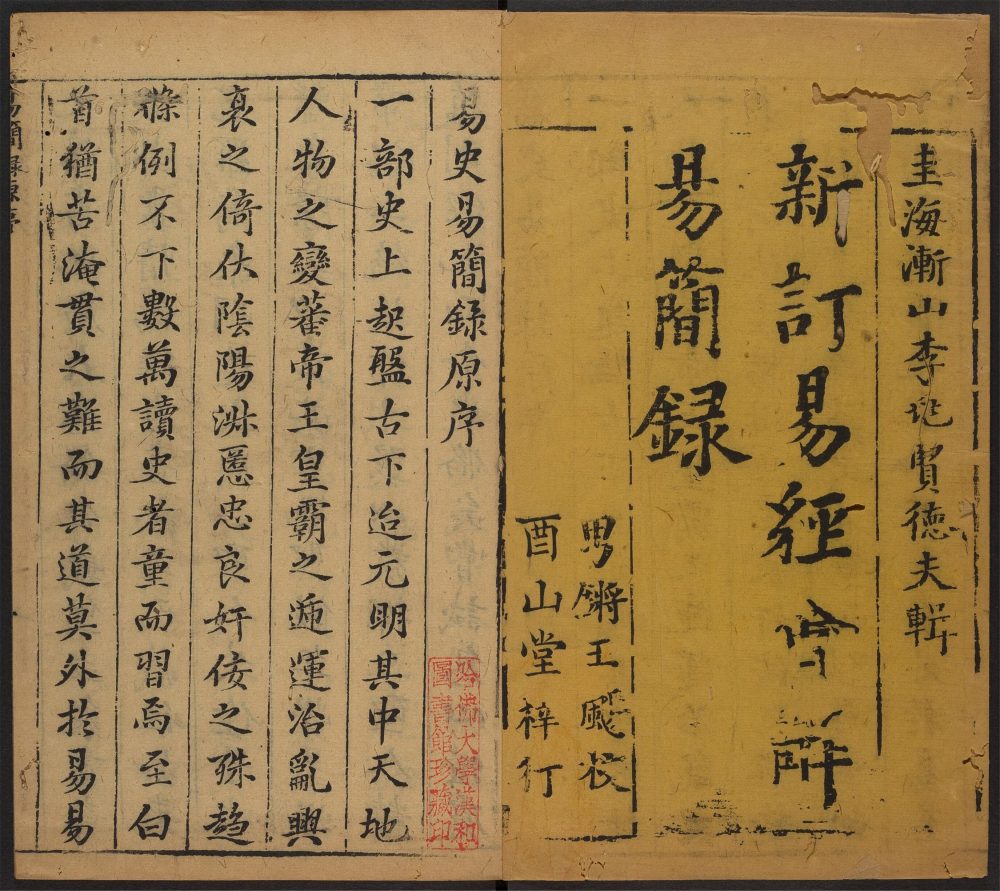 圭海漸山李 賢德夫輯
新訂易經
易簡錄
男鏘玉
酉山堂梓行
易史易簡錄原序
一部史上起盤古下迨元明其中天地
人物之變蕃帝王皇霸之遞運治亂興
衰之倚伏陰陽淑慝忠良奸佞之殊趋
條例不下數萬讀史者童而習焉至白
首猶苦淹貫之難而其道莫外於易易
哈佛大學漢和
圖書館珍藏印